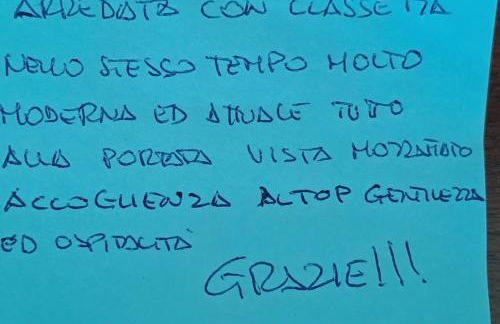 ARREDATA CON CLASSE MA
NELLO STESSO TEMPO MOLTO
MODERNA ED ATTUALE TUTTO
ALLA PORTATA VISTA MOZZAFIATO
ACCOGLIENZA AL TOP GENTILEZZA
ED OSPITALITÀ
GRAZIE!!!